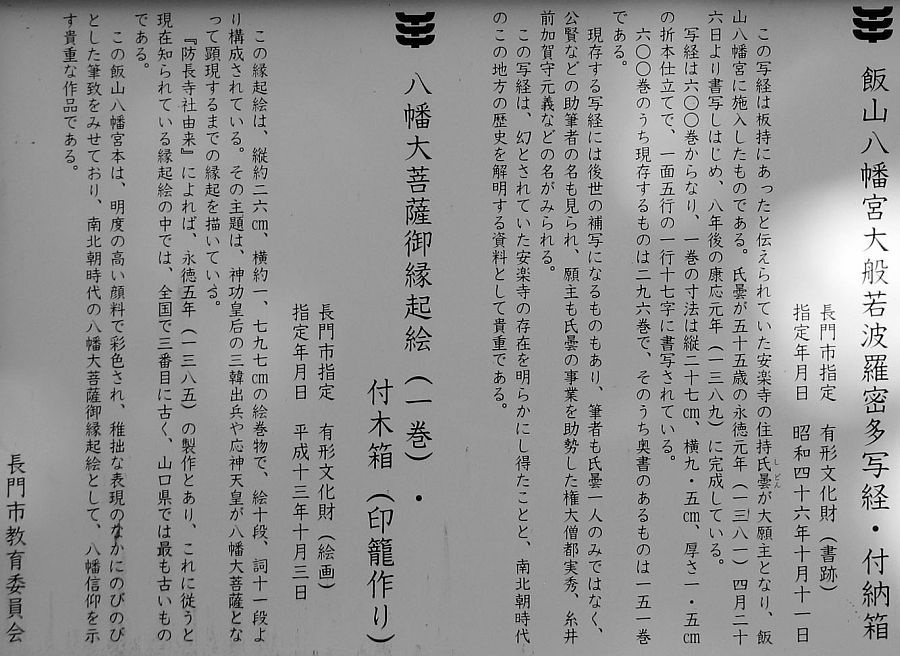 飯山八幡宮大般若波羅密多写経・付納箱
長門市指定 有形文化財（書跡）
指定年月日 昭和四十六年十月十一日
この写経は板持にあったと伝えられていた安楽寺の住持氏曇が大願主となり、飯
しどん
山八幡宮に施入したものである。氏曇が五十五歳の永徳元年（一三八一）四月二十
六日より書写しはじめ、八年後の康応元年（一三八九）に完成している。
写経は六〇〇巻からなり、一巻の寸法は縦二十七㎝、横九・五㎝、厚さ一・五㎝
の折本仕立てで、一面五行の一行十七字に書写されている。
六〇〇巻のうち現存するものは二九六巻で、そのうち奥書のあるものは一五一巻
である。
現存する写経には後世の補写になるものもあり、筆者も氏曇一人のみではなく、
公賢などの助筆者の名も見られ、願主も氏曇の事業を助勢した権大僧都実秀、糸井
前加賀守元義などの名がみられる。
この写経は、幻とされていた安楽寺の存在を明らかにし得たことと、南北朝時代
のこの地方の歴史を解明する資料として貴重である。
八幡大菩薩御縁起絵（一巻）・
付木箱（印籠作り）
長門市指定 有形文化財（絵画）
指定年月日 平成十三年十月三日
この縁起絵は、縦約二六㎝、横約一、七九七㎝の絵巻物で、絵十段、詞十一段よ
り構成されている。その主題は、神功皇后の三韓出兵や応神天皇が八幡大菩薩とな
って顕現するまでの縁起を描いている。
『防長寺社由来』によれば、永徳五年（一三八五）の製作とあり、これに従うと
現在知られている縁起絵の中では、全国で三番目に古く、山口県では最も古いもの
である。
この飯山八幡宮本は、明度の高い顔料で彩色され、稚拙な表現のなかにのびのび
とした筆致をみせており、南北朝時代の八幡大菩薩御縁起絵として、八幡信仰を示
す貴重な作品である。
長門市教育委員会